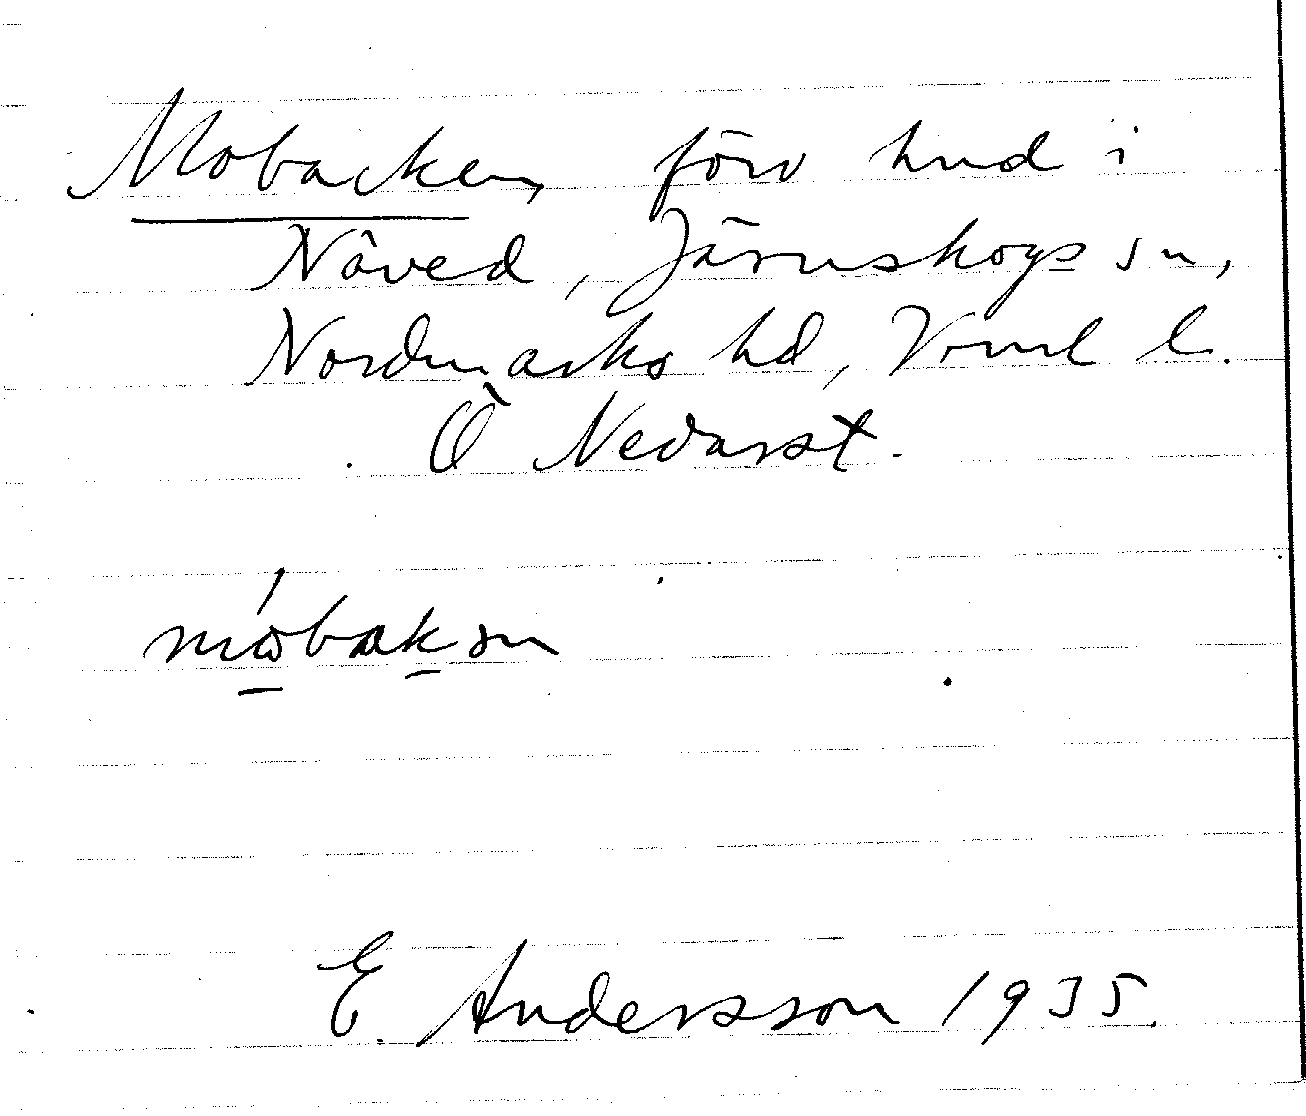 Mobacken, förv hmd i
Nåved, Järnskogs sn,
Nordmarks hd, Vrml l.
Ö Nedarst.
móbakən
E. Andersson 1935.